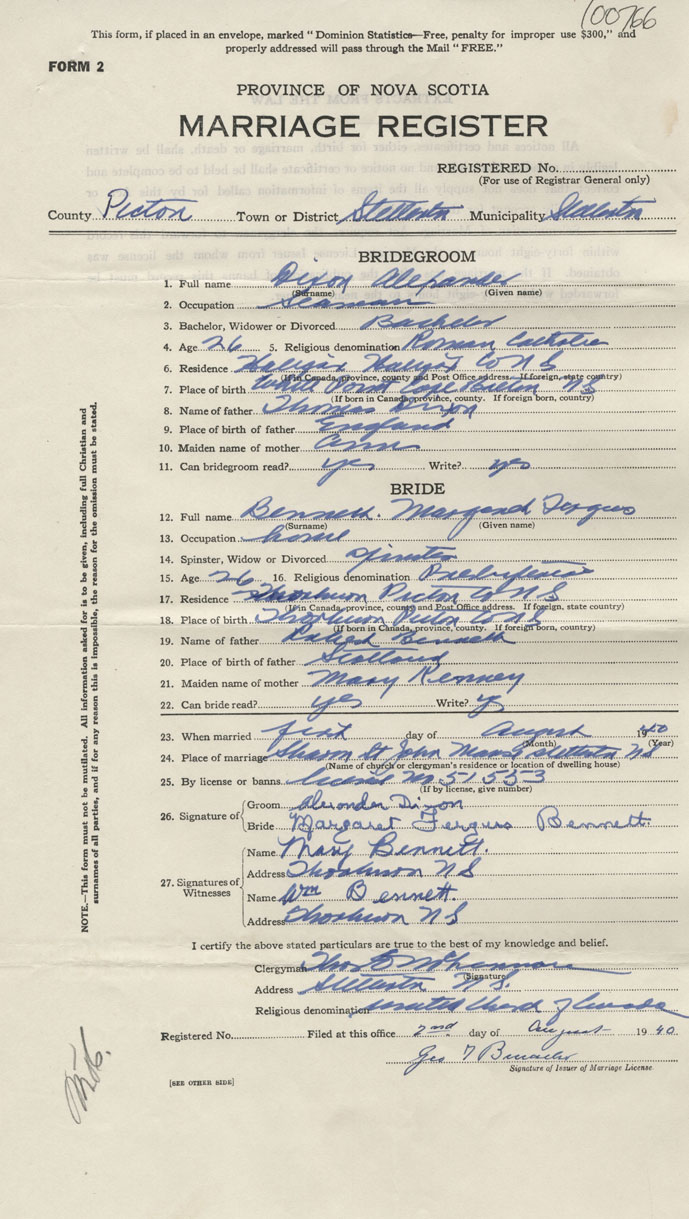 100766
This form, if placed in an envelope, marked "Dominion Statistics—Free, penalty for improper use $300," and
properly addressed will pass through the Mail "FREE."
FORM 2
PROVINCE OF NOVA SCOTIA
MARRIAGE REGISTER
REGISTERED No.
(For use of Registrar General only)
County Pictou Town or District Stellarton Municipality Stellarton
BRIDEGROOM
1. Full name Dixon Alexander
(Surname) (Given name)
2. Occupation Seaman
3. Bachelor, Widower or Divorced Bachelor
4. Age 26 5. Religious denomination Roman Catholic
6. Residence Halifax Halifax Co N S
(If in Canada, province, county and Post Office address. If foreign, state country)
7. Place of birth White Point Cape Breton N S
(If born in Canada, province, county. If foreign born, country)
8. Name of father Thomas Dixon
9. Place of birth of father England
10. Maiden name of mother
11. Can bridegroom read? yes Write? yes
BRIDE
12. Full name Bennett. Margaret Fergus
(Surname) (Given name)
13. Occupation home
14. Spinster, Widow or Divorced Spinster
15. Age 26 16. Religious denomination Presbyterian
17. Residence Thorburn Pictou Co N S
(If in Canada, province, county and Post Office address. If foreign, state country)
18. Place of birth Thorburn Pictou Co N S
(If born in Canada, province, county. If foreign born, country)
19. Name of father Bennett
20. Place of birth of father Scotland
21. Maiden name of mother Mary Kenney
22. Can bride read? yes Write? yes
23. When married first day of August 1940
(Month) (Year)
24. Place of marriage Sharon St John Manse Stellarton N S
(Name of church or clergyman's residence or location of dwelling house)
25. By license or banns license No. 51553
(If by license, give number)
26. Signature of
Groom Alexander Dixon
Bride Margaret Fergus Bennett.
27. Signatures of Witnesses
Name Mary Bennett.
Address Thorburn N S
Name Wm Bennett.
Address Thorburn N S
I certify the above stated particulars are true to the best of my knowledge and belief.
Clergyman
(Signature)
Address Stellarton N. S.
Religious denomination United Church of Canada
Registered No. Filed at this office 2nd day of August 1940.
Geo
Signature of Issuer of Marriage License.
[SEE OTHER SIDE]
NOTE.—This form must not be mutilated. All information asked for is to be given, including full Christian and
surnames of all parties, and if for any reason this is impossible, the reason for the omission must be stated.